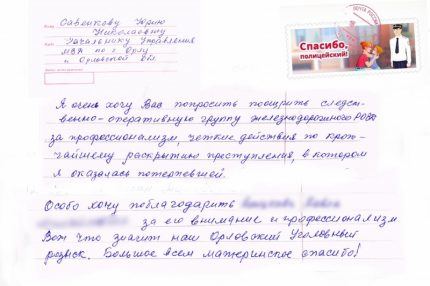 Савенкову Юрию
Николаевичу
Начальнику Управления
МВД по г. Орлу
и Орловской обл.
ПОЧТА РОССИИ
Спасибо,
полицейский!
Я очень хочу Вас попросить поощрить следст-
венно-оперативную группу железнодорожного РОВД
за профессионализм, четкие действия по крот-
чайшему раскрытию преступления, в котором
я оказалась потерпевшей.
Особо хочу поблагодарить
за его внимание и профессионализм.
Вот что значит наш Орловский Уголовный
розыск. Большое всем материнское спасибо!